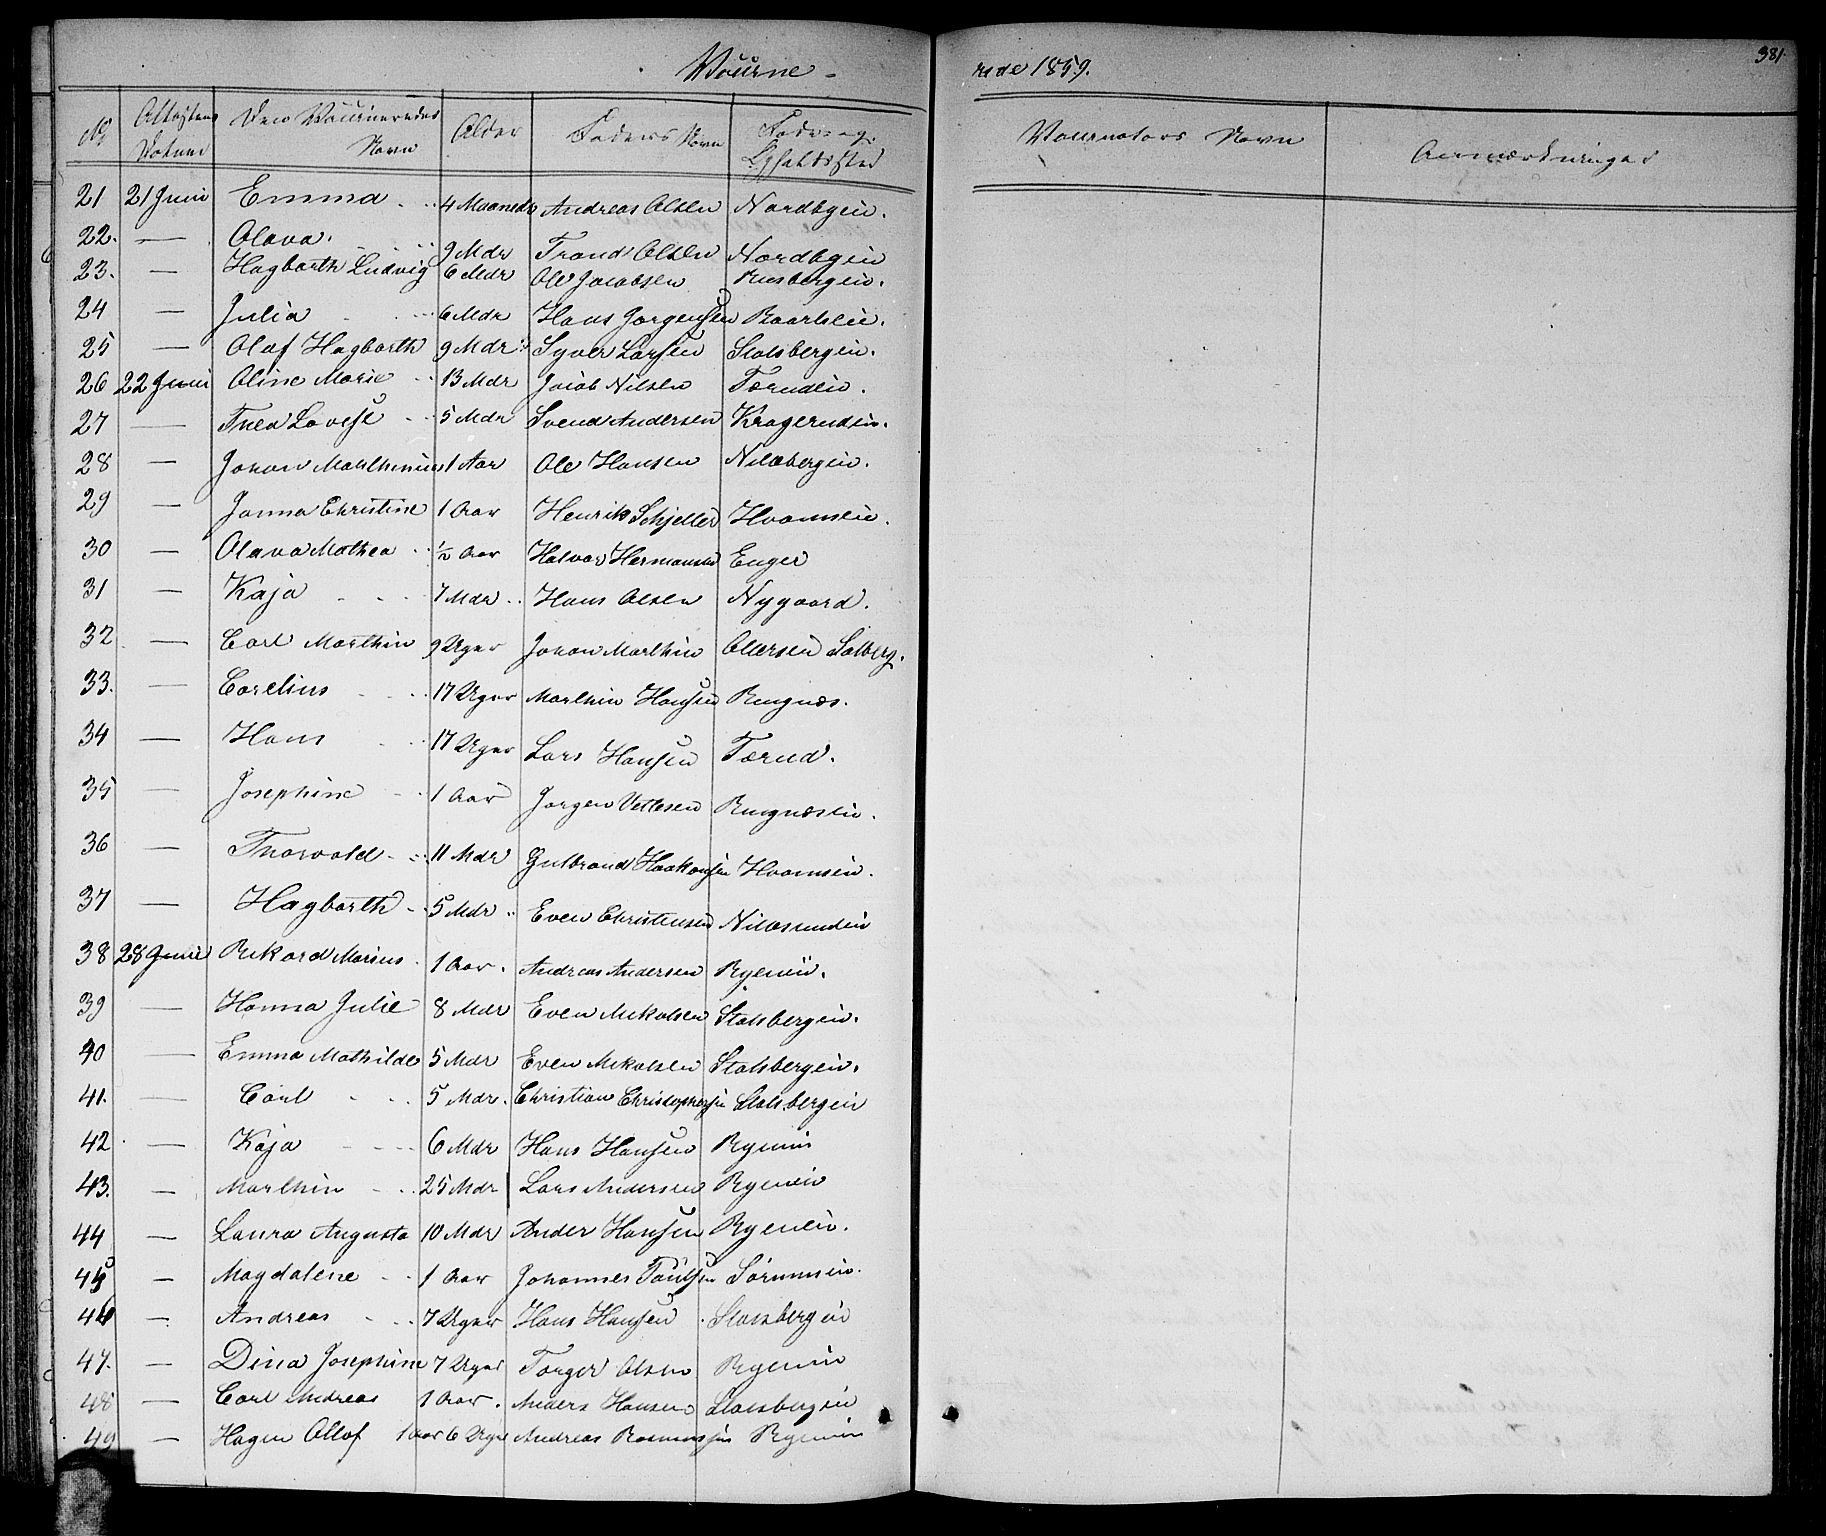 Vaccine-
rede 1859.
381
No
Attestens Datum
Den Vaccineredes Navn
Alder
Faders Navn
Føde- og Opholdssted
Vaccinators Navn
Anmærkninger
21 21 Juni Emma 4 Maaneder Andreas Olsen Nordbyein.
22. — Olava. 9 Mdr Trond Olsen Nordbyein
23. — Hagbarth Ludvig 6 Mdr Ole Jacobsen
24 — Julia 6 Mdr Hans Jørgensen
25 — Olaf Hagbarth 9 Mdr Syver Larsen Stolsbergein.
26 22 Juni Oline Marie 13 Mdr Jacob Nilsen Tærudein.
27 — Thea Lovise 5 Mdr Svend Andersen Kragerudein.
28 — Johan Marthinius 1 Aar Ole Hansen Nilsbergein.
29 — Janna Christine 1 Aar Henrik Schjeller Hvamsein.
30 — Olava Mathea 1/2 Aar Halvor Hermansen Enger
31 — Kaja 7 Mdr Hans Olsen Nygaard.
32 — Carl Marthin 9 Uger Johan Marthin Ottersen Solberg.
33. — Carelius 17 Uger Marthin Hansen Ringnæs.
34 — Hans 17 Uger Lars Hansen Tærud.
35 — Josephine 1 Aar Jørgen Vettesen Ringnæsein.
36 — Thorvald 11 Mdr Gulbrand Haakonsen Hvamsein.
37 — Hagbarth 5 Mdr Even Christensen
38 28 Juni Rikard Marius 1 Aar. Andreas Andersen Ryenein.
39 — Hanna Julie 8 Mdr Even Mikalsen Stolsbergein.
40 — Emma Mathilde 5 Mdr Even Mikalsen Stolsbergein.
41. — Carl 5 Mdr. Christian Christophersen Stolsbergein
42 — Kaja 6 Mdr Hans Hansen Ryenein
43. — Marthin 25 Mdr Lars Andersen Ryenein
44 — Laura Augusta 10 Mdr Ander Hansen Ryenein.
45 — Magdalene 1 Aar Johannes Paulsen Sørumsein.
46 — Andreas 7 Uger Hans Hansen Stolsbergein
47. — Dina Josephine 7 Uger Torger Olsen Ryenein
48 — Carl Andreas 1 Aar. Anders Hansen Stolsbergein
49 — Hagen Olaf 1 aar 6 Uger Andreas Rasmussen Ryenein